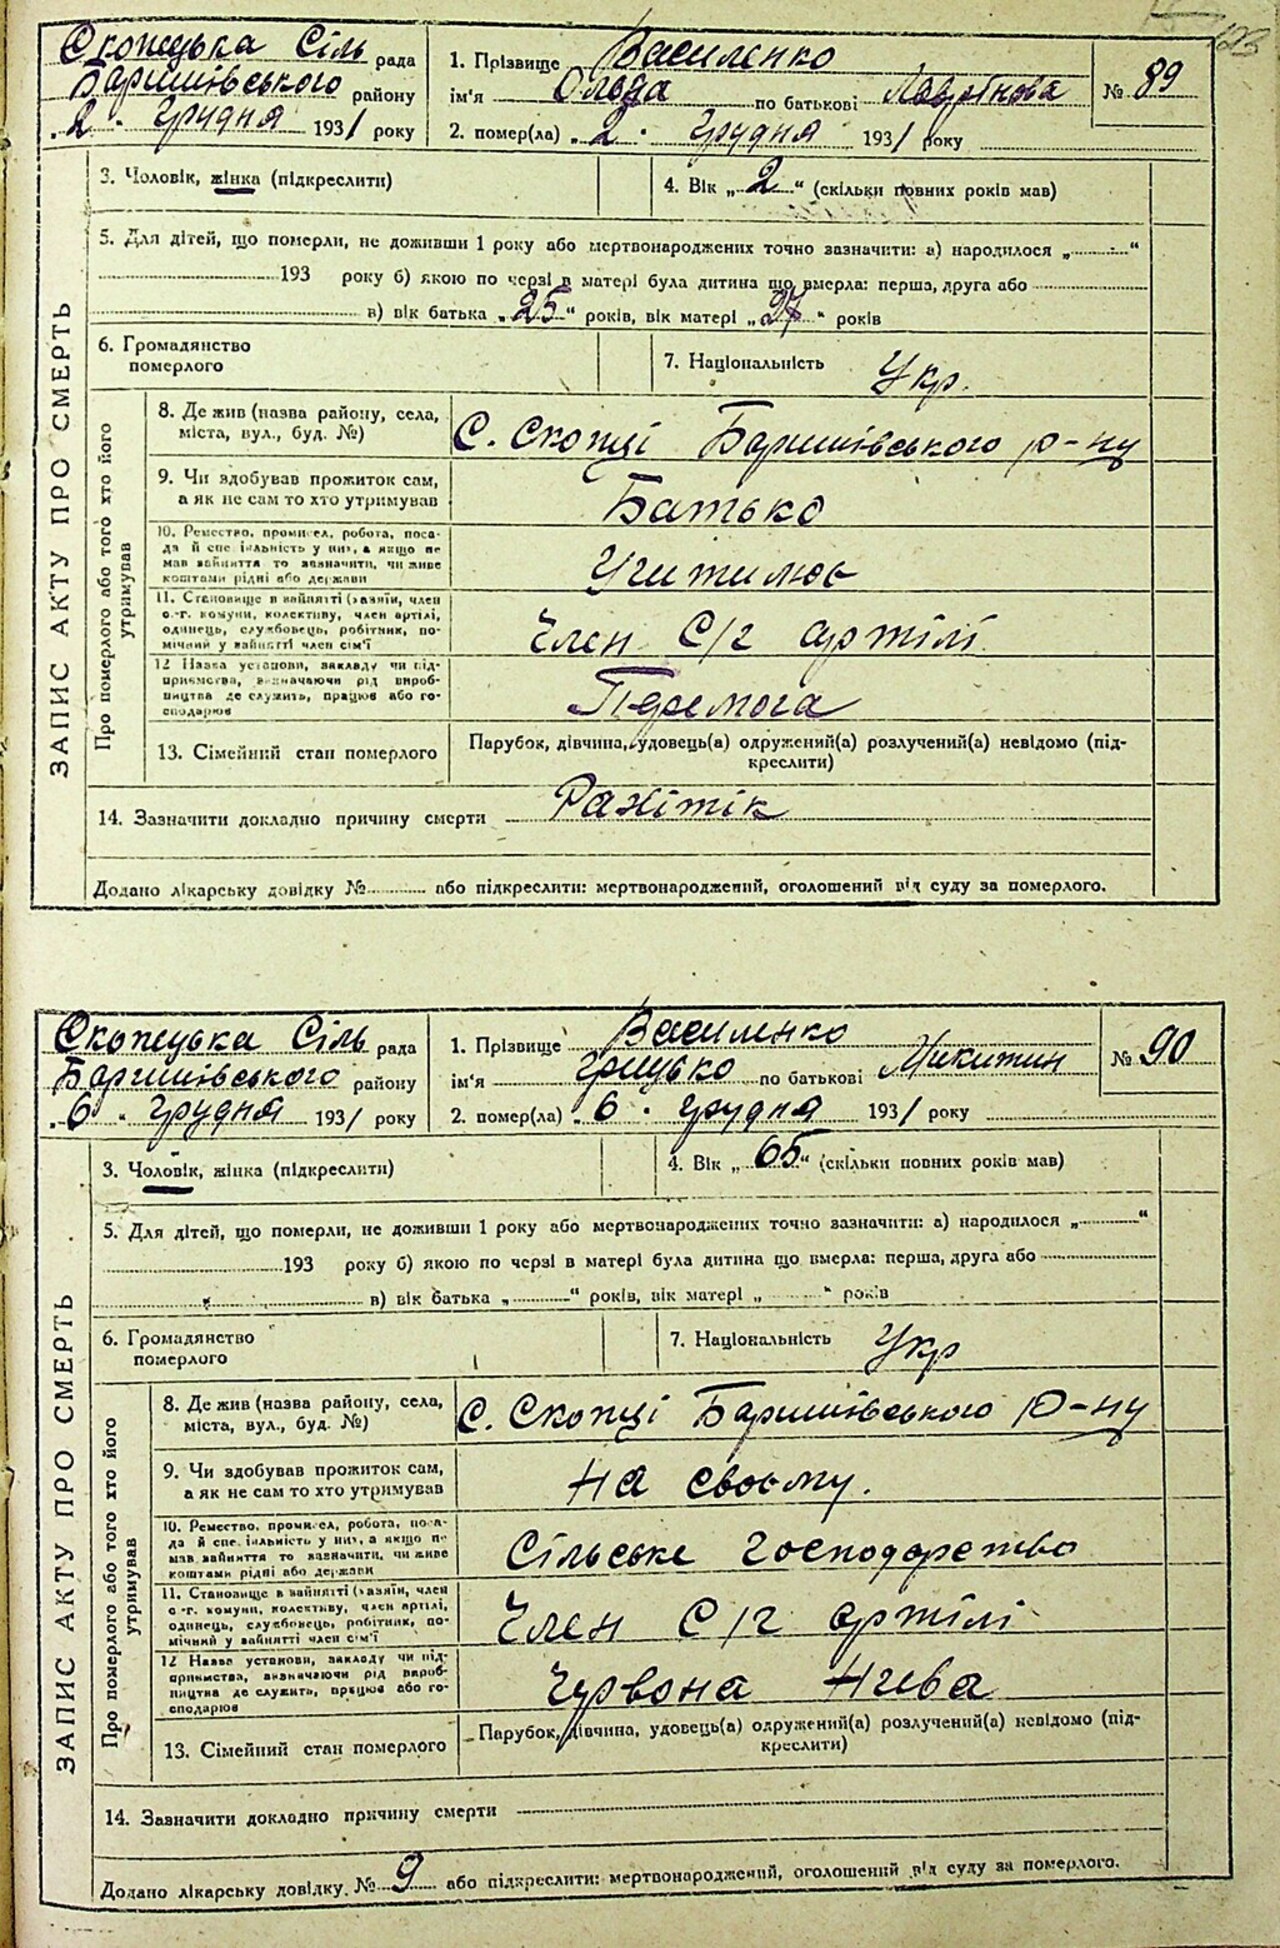 123
Скопецька Сіль рада
Баришівського району
„2" Грудня 1931 року
1. Прізвище Василенко
ім'я Ольга по батькові Лаврінова
2. помер(ла) „2" Грудня 1931 року
№ 89
ЗАПИС АКТУ ПРО СМЕРТЬ
3. Чоловік, жінка (підкреслити)
4. Вік „2" (скільки повних років мав)
5. Для дітей, що померли, не доживши 1 року або мертвонароджених точно зазначити: а) народилося „ "
193 року б) якою по черзі в матері була дитина що вмерла: перша, друга або
в) вік батька „25" років, вік матері „27" років
6. Громадянство
померлого
7. Національність Укр.
Про померлого або того хто його
утримував
8. Де жив (назва району, села,
міста, вул., буд. №)
С. Скопці Баришівського р-ну
9. Чи здобував прожиток сам,
а як не сам то хто утримував
Батько
10. Ремество, промисел, робота, поса-
да й спеціальність у них, а якщо не
мав зайняття то зазначити, чи живе
коштами рідні або держави
Учителює
11. Становище в зайнятті (хазяїн, член
с.-г. комуни, колективу, член артілі,
одинець, службовець, робітник, по-
мічний у зайнятті член сім'ї
Член С/г артілі
12 Назва установи, закладу чи під-
приємства, визначаючи рід вироб-
ництва де служить, працює або го-
сподарює
Перемога
13. Сімейний стан померлого
Парубок, дівчина, удовець(а) одружений(а) розлучений(а) невідомо (під-
креслити)
14. Зазначити докладно причину смерти Рахітік
Додано лікарську довідку № або підкреслити: мертвонароджений, оголошений від суду за померлого.
Скопецька Сіль рада
Баришівського району
„6" Грудня 1931 року
1. Прізвище Василенко
ім'я Грицько по батькові Микитин
2. помер(ла) „6" Грудня 1931 року
№ 90
ЗАПИС АКТУ ПРО СМЕРТЬ
3. Чоловік, жінка (підкреслити)
4. Вік „65" (скільки повних років мав)
5. Для дітей, що померли, не доживши 1 року або мертвонароджених точно зазначити: а) народилося „ "
193 року б) якою по черзі в матері була дитина що вмерла: перша, друга або
в) вік батька „ " років, вік матері „ " років
6. Громадянство
померлого
7. Національність Укр
Про померлого або того хто його
утримував
8. Де жив (назва району, села,
міста, вул., буд. №)
С. Скопці Баришівського Р-ну
9. Чи здобував прожиток сам,
а як не сам то хто утримував
На своєму.
10. Ремество, промисел, робота, поса-
да й спеціальність у них, а якщо не
мав зайняття то зазначити, чи живе
коштами рідні або держави
Сільське господарство
11. Становище в зайнятті (хазяїн, член
с.-г. комуни, колективу, член артілі,
одинець, службовець, робітник, по-
мічний у зайнятті член сім'ї
Член С/г артілі
12 Назва установи, закладу чи під-
приємства, визначаючи рід вироб-
ництва де служить, працює або го-
сподарює
Червона Нива
13. Сімейний стан померлого
Парубок, дівчина, удовець(а) одружений(а) розлучений(а) невідомо (під-
креслити)
14. Зазначити докладно причину смерти
Додано лікарську довідку № 9 або підкреслити: мертвонароджений, оголошений від суду за померлого.